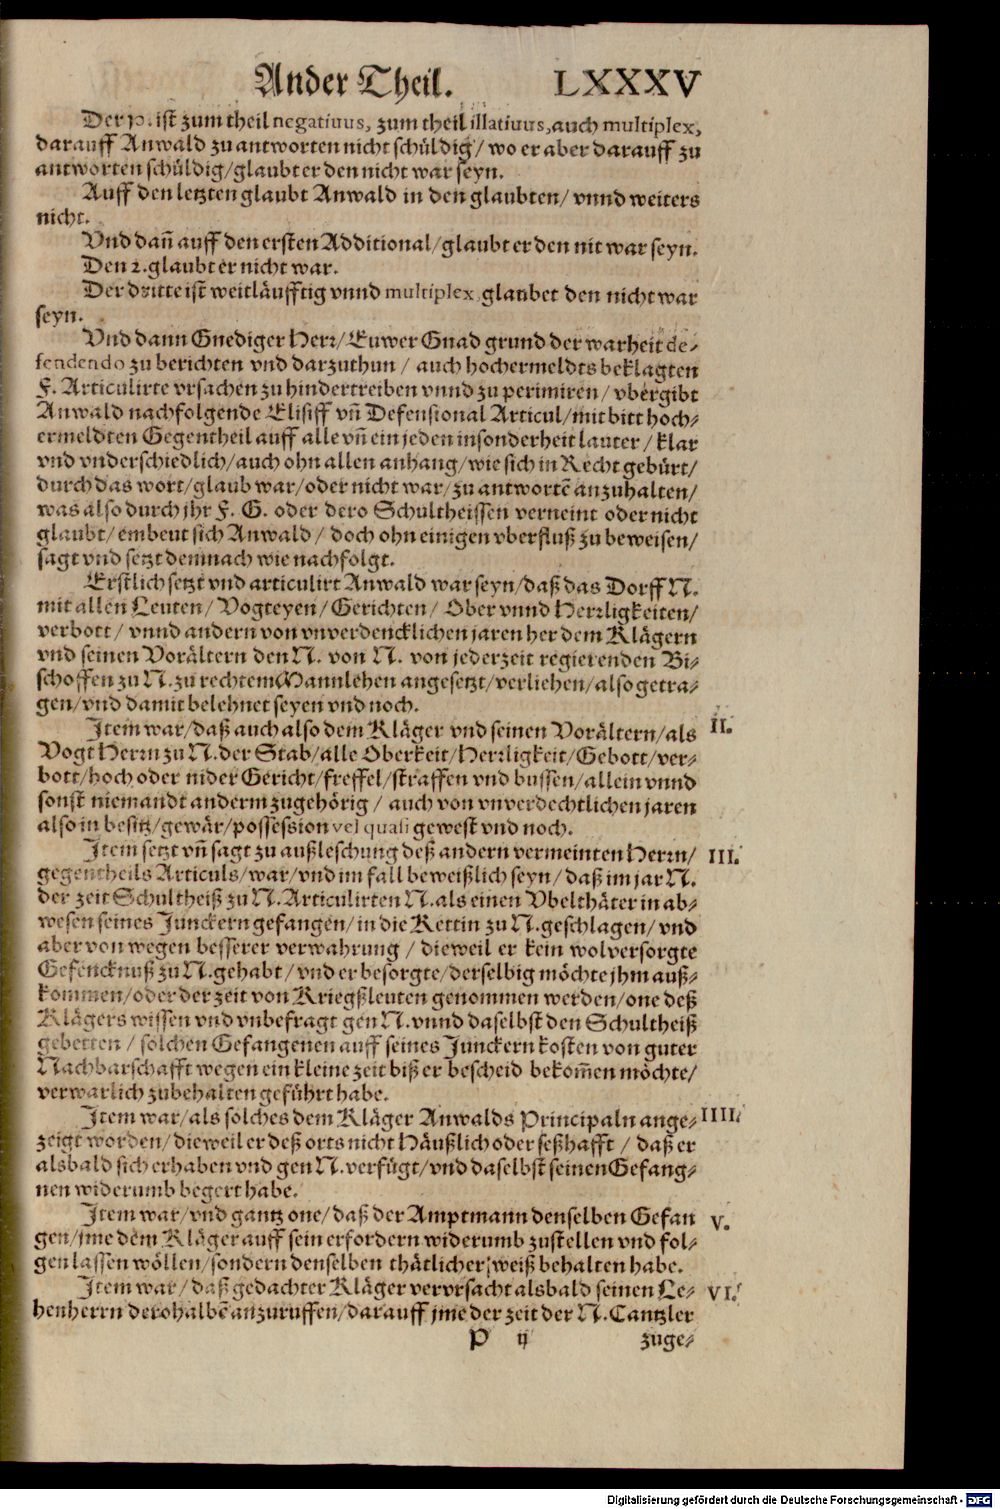 Ander Theil. LXXXV
Der p. ist zum theil negatiuus, zum theil illatiuus, auch multiplex,
darauff Anwald zu antworten nicht schüldig / wo er aber darauff zu
antworten schüldig / glaubt er den nicht war seyn.
Auff den letzten glaubt Anwald in den glaubten / vnnd weiters
nicht.
Vnd dañ auff den ersten Additional / glaubt er den nit war seyn.
Den 2. glaubt er nicht war.
Der dritte ist weitläufftig vnnd multiplex, glaubet den nicht war
seyn.
Vnd dann Gnediger Herr / Euwer Gnad grund der warheit de-
fendendo zu berichten vnd darzuthun / auch hochermeldts beklagten
F. Articulirte vrsachen zu hindertreiben vnnd zu perimiren / vbergibt
Anwald nachfolgende Elisiff vñ Defensional Articul / mit bitt hoch-
ermeldten Gegentheil auff alle vñ ein jeden insonderheit lauter / klar
vnd vnderschiedlich / auch ohn allen anhang / wie sich in Recht gebürt /
durch das wort / glaub war / oder nicht war / zu antwortẽ anzuhalten /
was also durch jhr F. G. oder dero Schultheissen verneint oder nicht
glaubt / embeut sich Anwald / doch ohn einigen vberfluß zu beweisen /
sagt vnd setzt demnach wie nachfolgt.
Erstlich setzt vnd articulirt Anwald war seyn / daß das Dorff N.
mit allen Leuten / Vogteyen / Gerichten / Ober vnnd Herrligkeiten /
verbott / vnnd andern von vnverdencklichen jaren her dem Klägern
vnd seinen Vorältern den N. von N. von jederzeit regierenden Bi-
schoffen zu N. zu rechtem Mannlehen angesetzt / verliehen / also getra-
gen / vnd damit belehnet seyen vnd noch.
Item war / daß auch also dem Kläger vnd seinen Vorältern / als II.
Vogt Herrn zu N. der Stab / alle Oberkeit / Herrligkeit / Gebott / ver-
bott / hoch oder nider Gericht / freffel / straffen vnd bussen / allein vnnd
sonst niemandt anderm zugehörig / auch von vnverdechtlichen jaren
also in besitz / gewär / possession vel quasi gewest vnd noch.
Item setzt vñ sagt zu außleschung deß andern vermeinten Herrn / III.
gegentheils Articuls / war / vnd im fall beweißlich seyn / daß im jar N.
der zeit Schultheiß zu N. Articulirten N. als einen Vbelthäter in ab-
wesen seines Junckern gefangen / in die Kettin zu N. geschlagen / vnd
aber von wegen besserer verwahrung / dieweil er kein wolversorgte
Gefencknuß zu N. gehabt / vnd er besorgte / derselbig möchte jhm auß-
kommen / oder der zeit von Kriegßleuten genommen werden / one deß
Klägers wissen vnd vnbefragt gen N. vnnd daselbst den Schultheiß
gebetten / solchen Gefangenen auff seines Junckern kosten von guter
Nachbarschafft wegen ein kleine zeit biß er bescheid bekom̃en möchte /
verwarlich zubehalten geführt habe.
Item war / als solches dem Kläger Anwalds Principaln ange- IIII.
zeigt worden / dieweil er deß orts nicht Häußlich oder seßhafft / daß er
alsbald sich erhaben vnd gen N. verfügt / vnd daselbst seinen Gefang-
nen widerumb begert habe.
Item war / vnd gantz one / daß der Amptmann denselben Gefan V.
gen / jme dem Kläger auff sein erfordern widerumb zustellen vnd fol-
gen lassen wöllen / sondern denselben thätlicher weiß behalten habe.
Item war / daß gedachter Kläger vervrsacht alsbald seinen Le- VI.
henherrn derohalbẽ anzuruffen / darauff jme der zeit der N. Cantzler
P ij zuge-
Digitalisierung gefördert durch die Deutsche Forschungsgemeinschaft - DFG